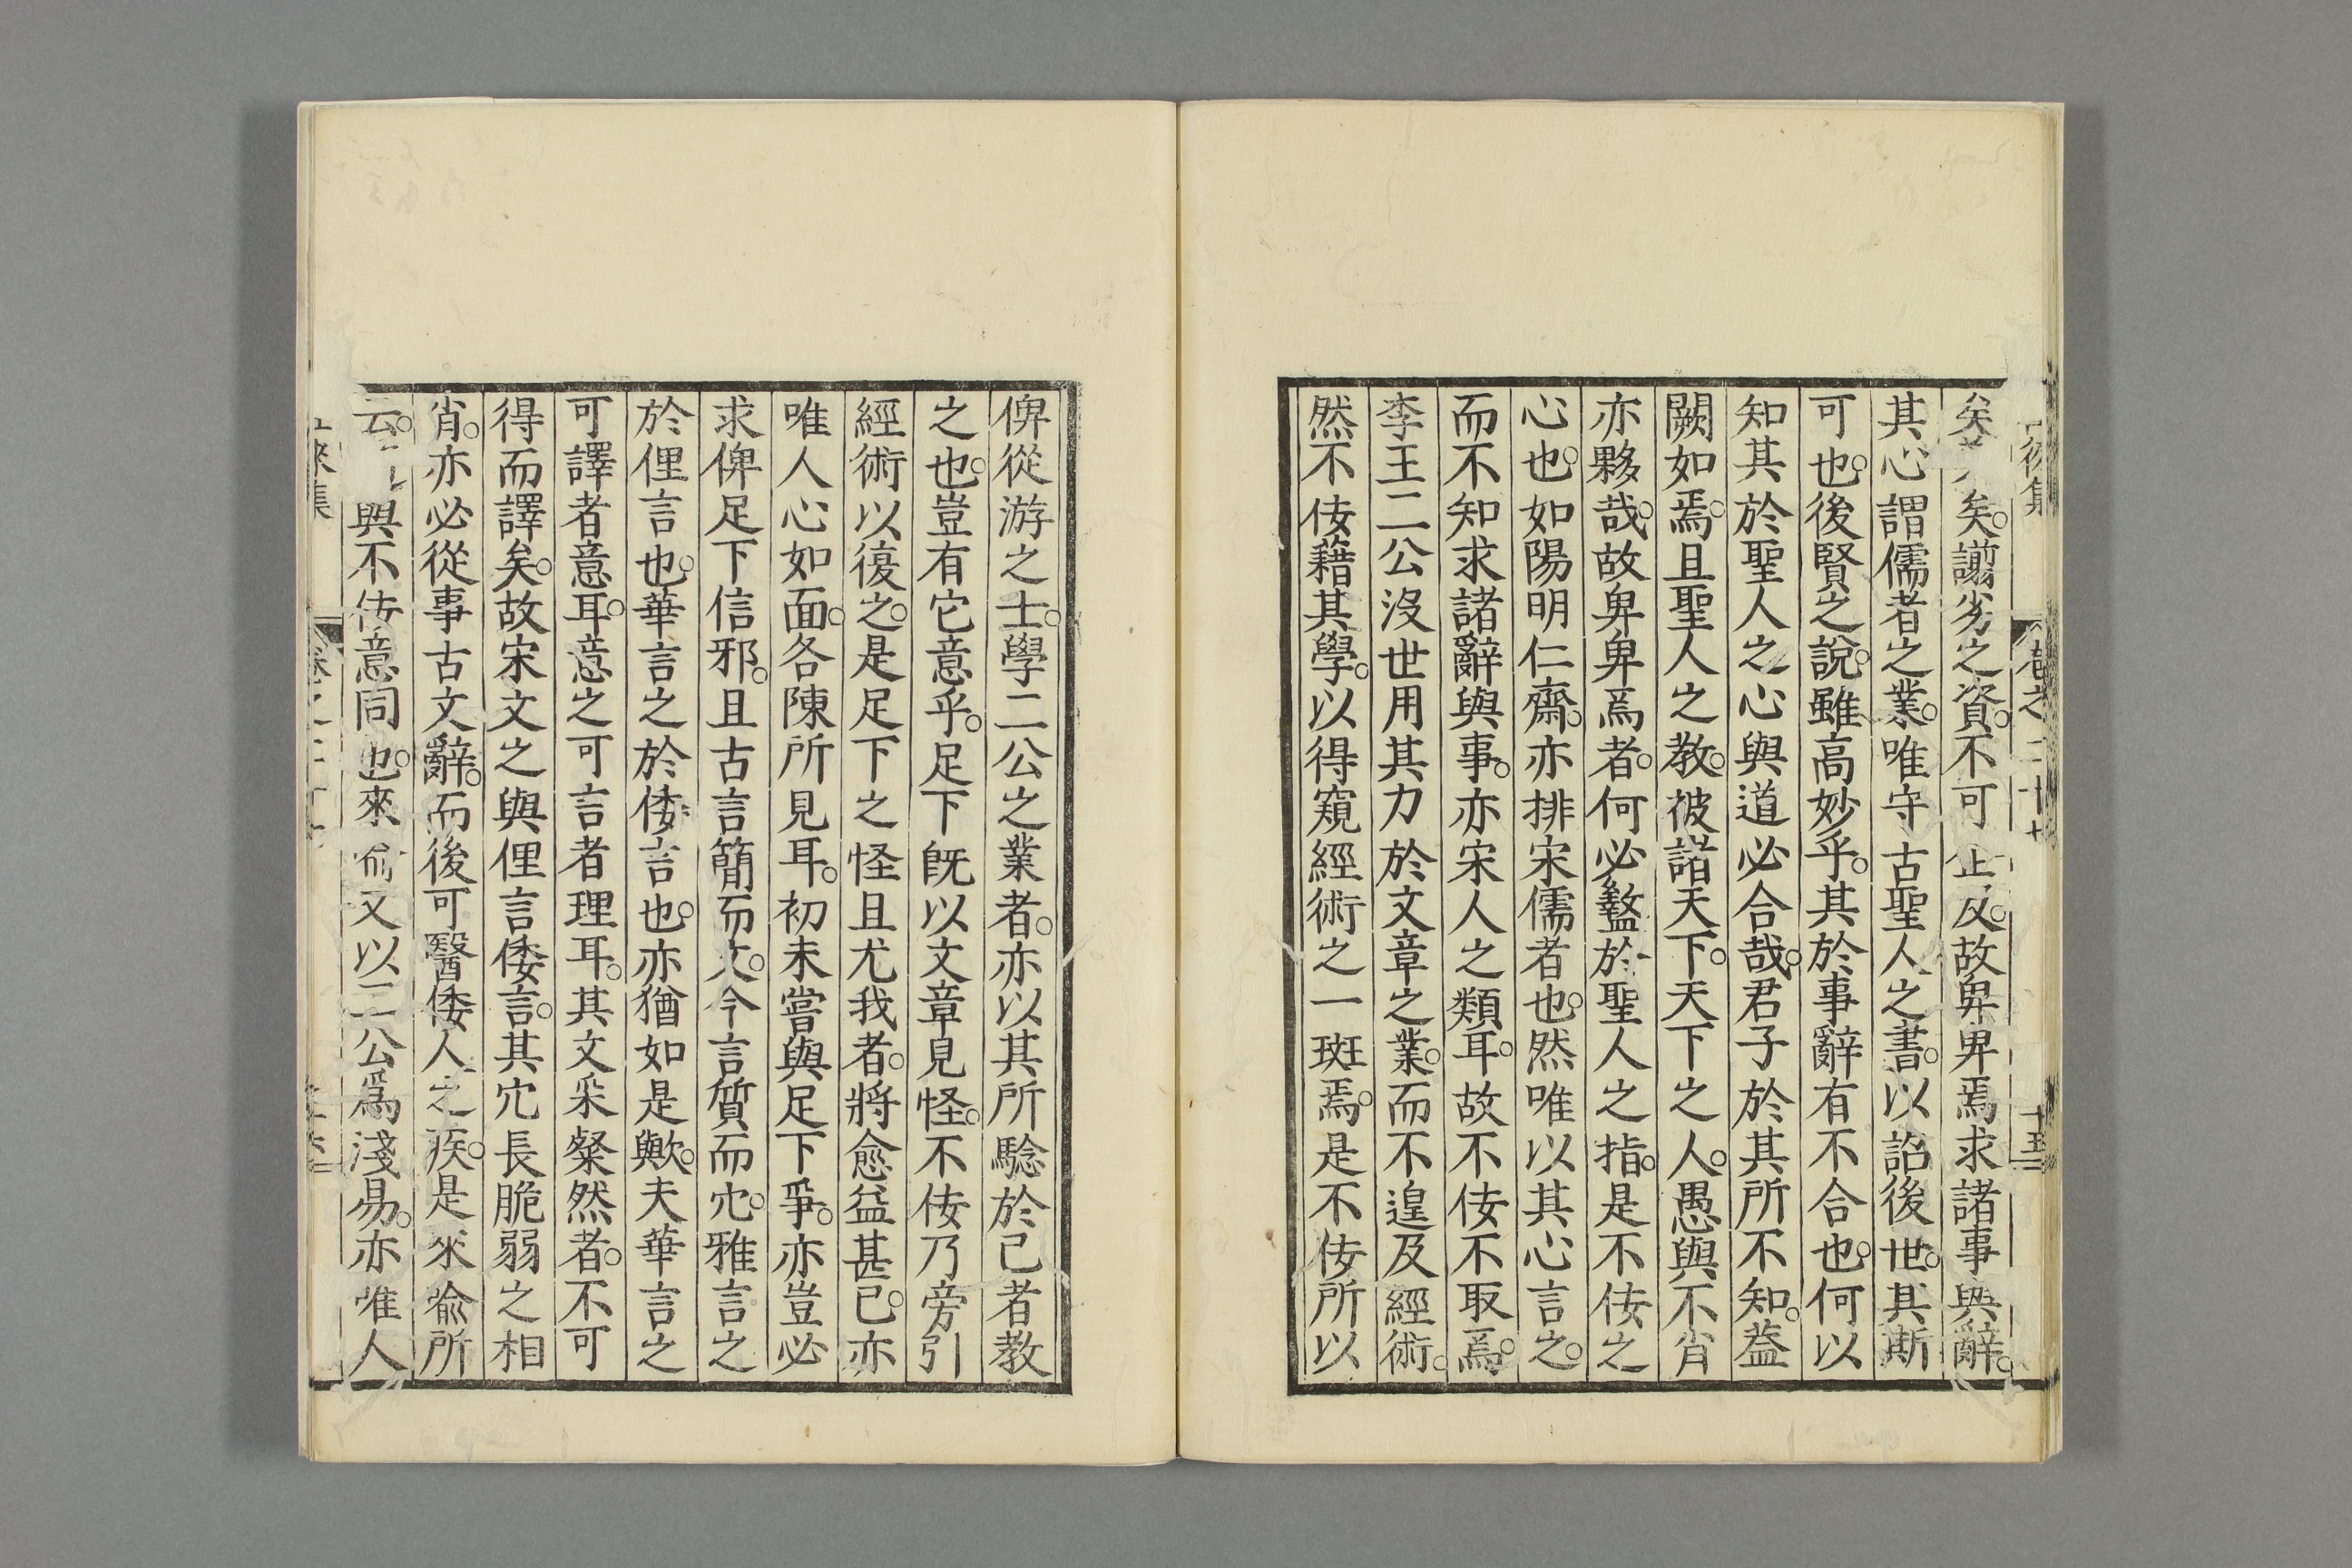 矣。謭劣之資。不可企及。故卑卑焉求諸事與辭。
其心謂儒者之業。唯守古聖人之書。以詔後世。其斯
可也。後賢之說。雖高妙乎。其於事辭有不合也。何以
知其於聖人之心與道必合哉。君子於其所不知。蓋
闕如焉。且聖人之教。被諸天下。天下之人。愚與不肖
亦夥哉。故卑卑焉者。何必盭於聖人之指。是不佞之
心也。如陽明仁齋。亦排宋儒者也。然唯以其心言之。
而不知求諸辭與事。亦宋人之類耳。故不佞不取焉。
李王二公沒世用其力於文章之業。而不遑及經術。
然不佞藉其學。以得窺經術之一斑焉。是不佞所以
俾從游之士。學二公之業者。亦以其所騐於己者教
之也。豈有它意乎。足下既以文章見怪。不佞乃旁引
經術以復之。是足下之怪且尤我者。將愈益甚已。亦
唯人心如面。各陳所見耳。初未嘗與足下爭。亦豈必
求俾足下信邪。且古言簡而文。今言質而冗。雅言之
於俚言也。華言之於倭言也。亦猶如是歟。夫華言之
可譯者意耳。意之可言者理耳。其文采粲然者。不可
得而譯矣。故宋文之與俚言倭言。其冗長脆弱之相
肖。亦必從事古文辭。而後可醫倭人之疾。是來喩所
云。與不佞意同也。來喩又以二公爲淺易。亦唯人
徠集
卷之二十